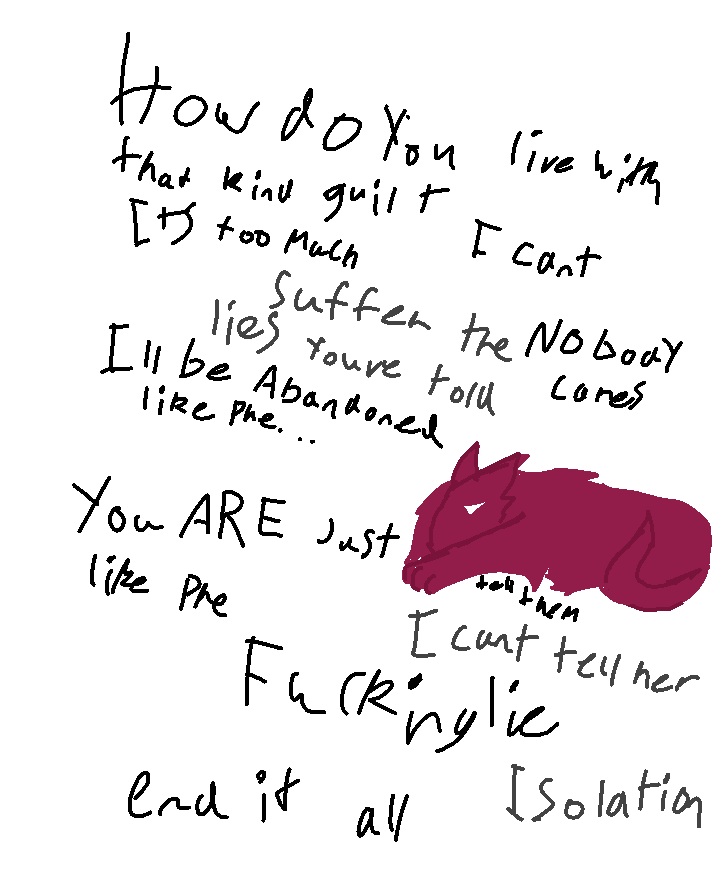 How do You live with
that kind guilt
Its too Much I cant
suffer the
lies Youre told
NObody
cares
I'll be Abandoned
like Phe...
You ARE Just
like Phe
tell them
I cant tell her
Fucking lie
end it all
Isolation